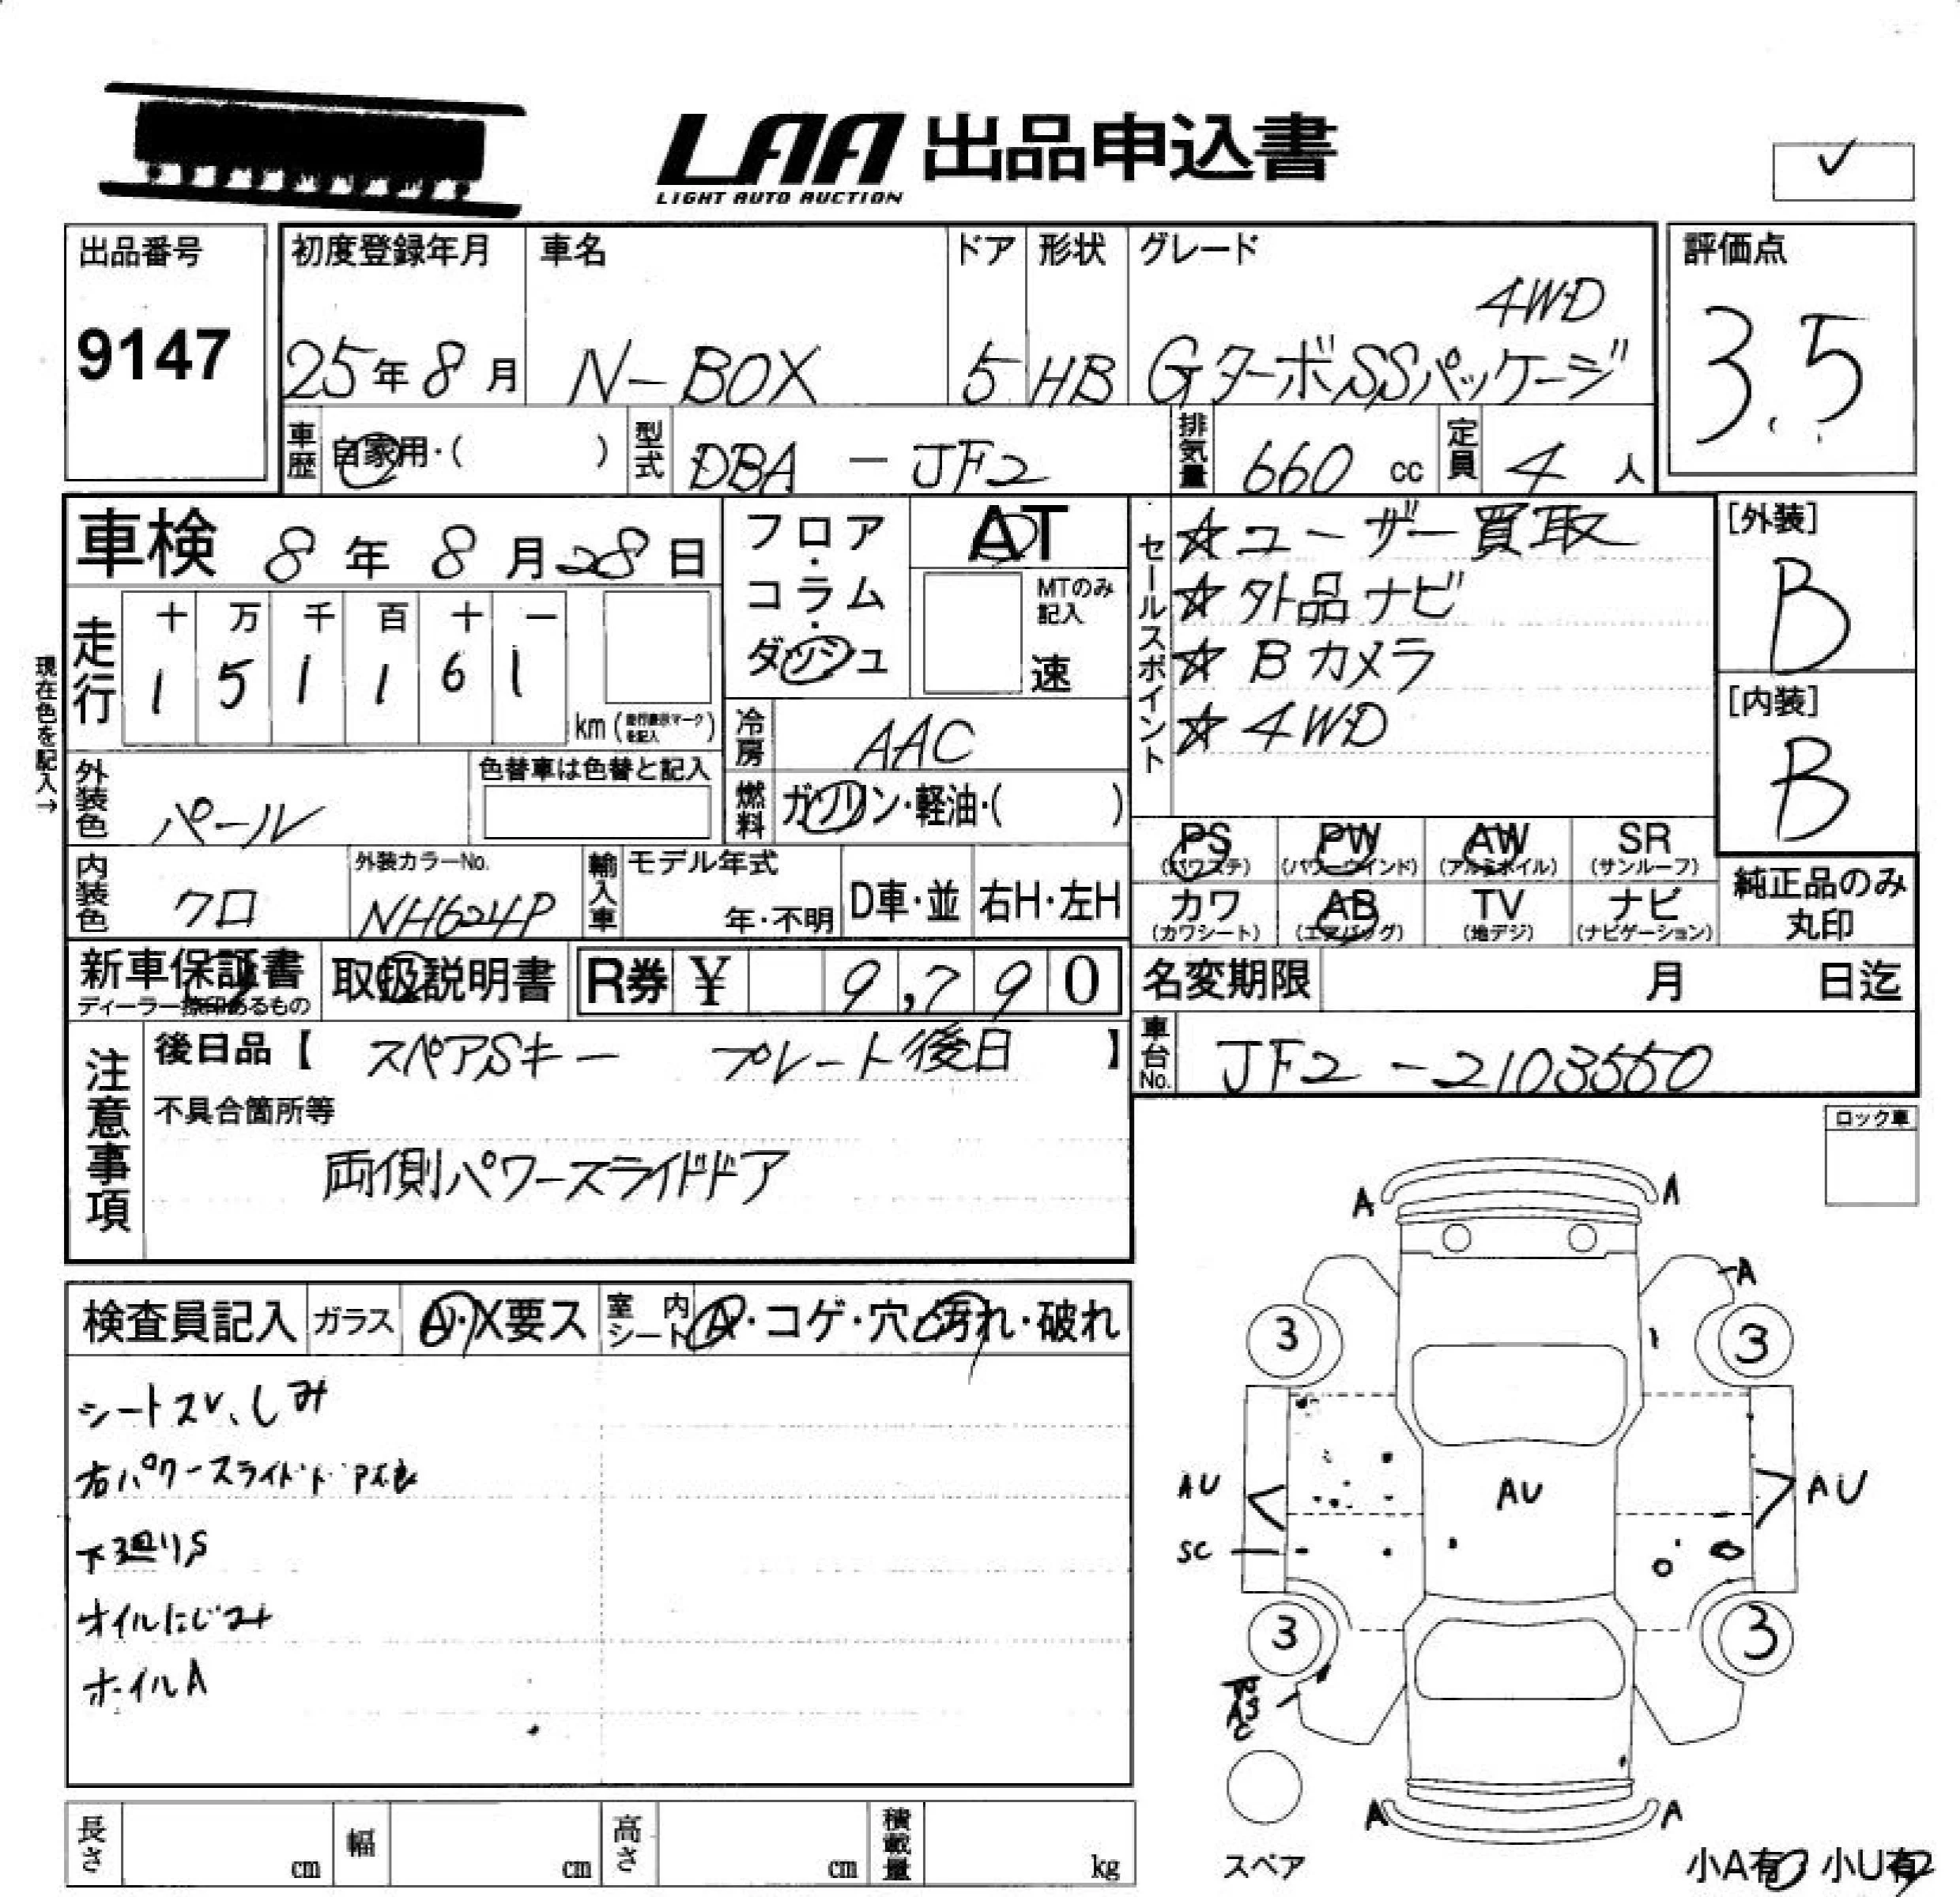 LAA 出品申込書
LIGHT AUTO AUCTION
✓
出品番号
9147
初度登録年月
25年8月
車名
N-BOX
ドア
5
形状
HB
グレード
4WD
GターボSSパッケージ
評価点
3.5
車歴
自家用・( )
型式
DBA - JF2
排気量
660 cc
定員
4人
車検 8年8月28日
フロア・コラム・ダッシュ
AT
MTのみ記入
速
セールスポイント
☆ユーザー買取
☆外品ナビ
☆Bカメラ
☆4WD
[外装]
B
[内装]
B
現在色を記入→
走行
十 万 千 百 十 一
1 5 1 1 6 1
km (走行表示マークを記入)
冷房
AAC
燃料
ガソリン・軽油・( )
外装色
パール
色替車は色替と記入
内装色
クロ
外装カラーNo.
NH624P
輸入車
モデル年式
年・不明
D車・並
右H・左H
PS (パワステ)
PW (パワーウインド)
AW (アルミホイル)
SR (サンルーフ)
カワ (カワシート)
AB (エアバッグ)
TV (地デジ)
ナビ (ナビゲーション)
純正品のみ丸印
新車保証書
ディーラー捺印あるもの
取扱説明書
R券 ¥ 9,790
名変期限 月 日迄
車台No.
JF2-2103550
注意事項
後日品【 スペアSキー プレート後日 】
不具合箇所等
両側パワースライドドア
ロック車
検査員記入
ガラス
A・X要ス
室内シート
A・コゲ・穴・汚れ・破れ
シートスレ、しみ
右パワースライドドア不良
下廻りS
オイルにじみ
ホイルA
A A
A
3 3
AU AU AU
SC
3 3
A A
スペア
小A有 小U有
長さ cm
幅 cm
高さ cm
積載量 kg